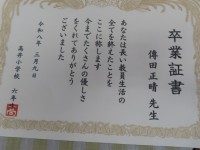 卒業証書
傳田正晴 先生
あなたは長い教員生活の
全てを終えたことを
ここに称します
今までたくさんの優しさ
をくれてありがとう
ございました
令和八年 三月九日
高井小学校 六年